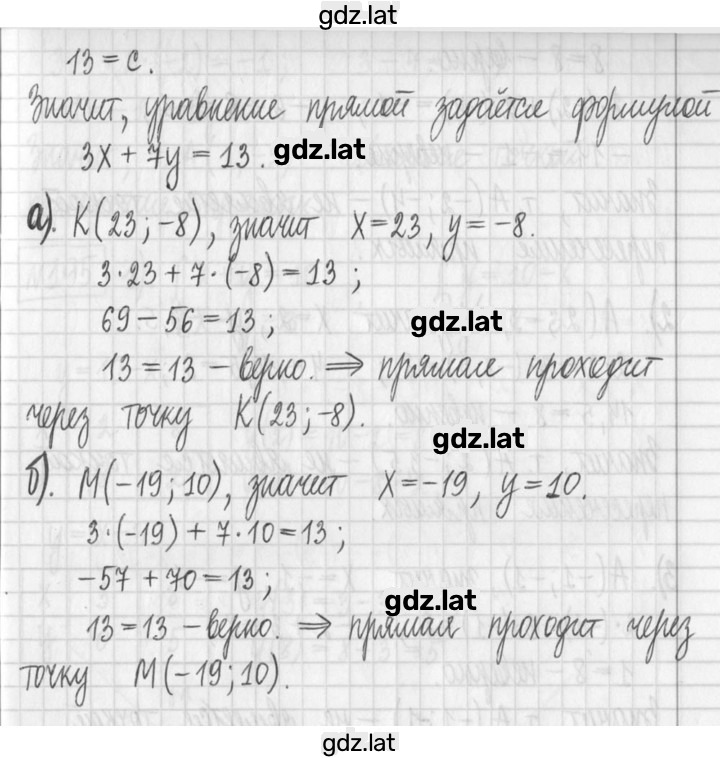 gdz.lat
13 = c.
Значит, уравнение прямой задаётся формулой
3x + 7y = 13. gdz.lat
а). K(23; -8), значит x=23, y=-8.
3·23 + 7·(-8) = 13;
69 - 56 = 13; gdz.lat
13 = 13 - верно. ⇒ прямая проходит
через точку K(23; -8).
gdz.lat
б). M(-19; 10), значит x=-19, y=10.
3·(-19) + 7·10 = 13;
-57 + 70 = 13;
gdz.lat
13 = 13 - верно. ⇒ прямая проходит через
точку M(-19; 10).
gdz.lat